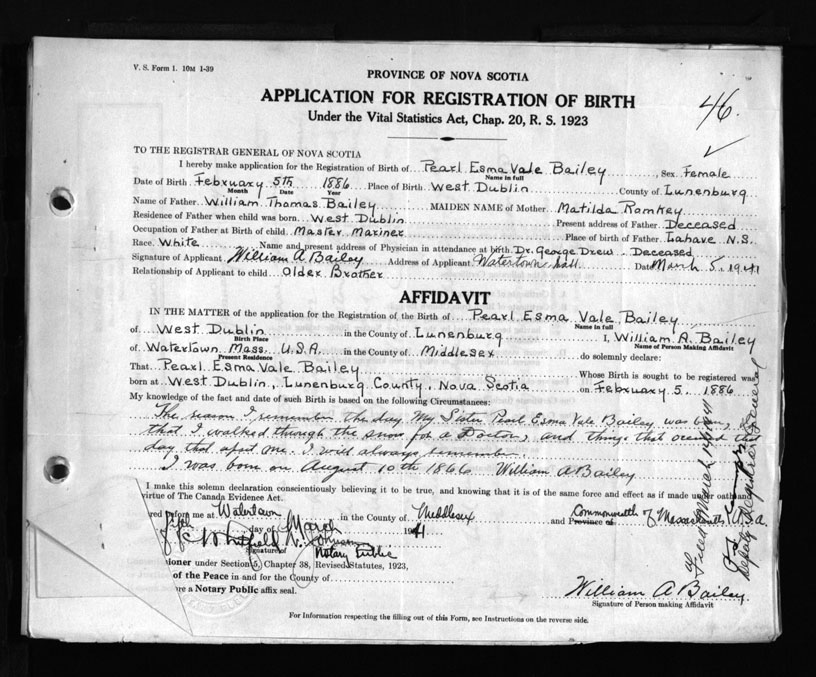 V. S. Form 1. 10M 1-39
PROVINCE OF NOVA SCOTIA
APPLICATION FOR REGISTRATION OF BIRTH
46.
Under the Vital Statistics Act, Chap. 20, R. S. 1923
TO THE REGISTRAR GENERAL OF NOVA SCOTIA
I hereby make application for the Registration of Birth of Pearl Esma Vale Bailey, Sex Female
Name in full
Date of Birth February 5th 1886 Place of Birth West Dublin County of Lunenburg
Month Date Year
Name of Father William Thomas Bailey MAIDEN NAME of Mother Matilda Romkey
Residence of Father when child was born West Dublin Present address of Father Deceased
Occupation of Father at Birth of child Master Mariner Place of birth of Father Lahave N.S.
Race White Name and present address of Physician in attendance at birth Dr. George Drew, Deceased
Signature of Applicant William A Bailey Address of Applicant Watertown, Mass. Date March 5, 1941
Relationship of Applicant to child Older Brother
AFFIDAVIT
IN THE MATTER of the application for the Registration of the Birth of Pearl Esma Vale Bailey
Name in full
of West Dublin in the County of Lunenburg I, William A. Bailey
Birth Place Name of Person Making Affidavit
of Watertown Mass. U.S.A. in the County of Middlesex do solemnly declare:
Present Residence
That Pearl Esma Vale Bailey Whose Birth is sought to be registered was
born at West Dublin, Lunenburg County, Nova Scotia on February 5, 1886
My knowledge of the fact and date of such Birth is based on the following Circumstances:
The reason I remember the day My Sister Pearl Esma Vale Bailey was born, is
that I walked through the snow for a Doctor, and things that occured that
day that upset me. I will always remember.
I was born on August 10th 1866 William A Bailey
I make this solemn declaration conscientiously believing it to be true, and knowing that it is of the same force and effect as if made under oath and
virtue of The Canada Evidence Act.
red before me at Watertown in the County of Middlesex and Province of Commonwealth of Massachusetts U.S.A.
fifth day of March 1941
Signature of Notary Public
sioner under Section 5, Chapter 38, Revised Statutes, 1923,
of the Peace in and for the County of
re a Notary Public affix seal.
William A Bailey
Signature of Person making Affidavit
For Information respecting the filling out of this Form, see Instructions on the reverse side.
Filed March 14 1941
Deputy Registrar General